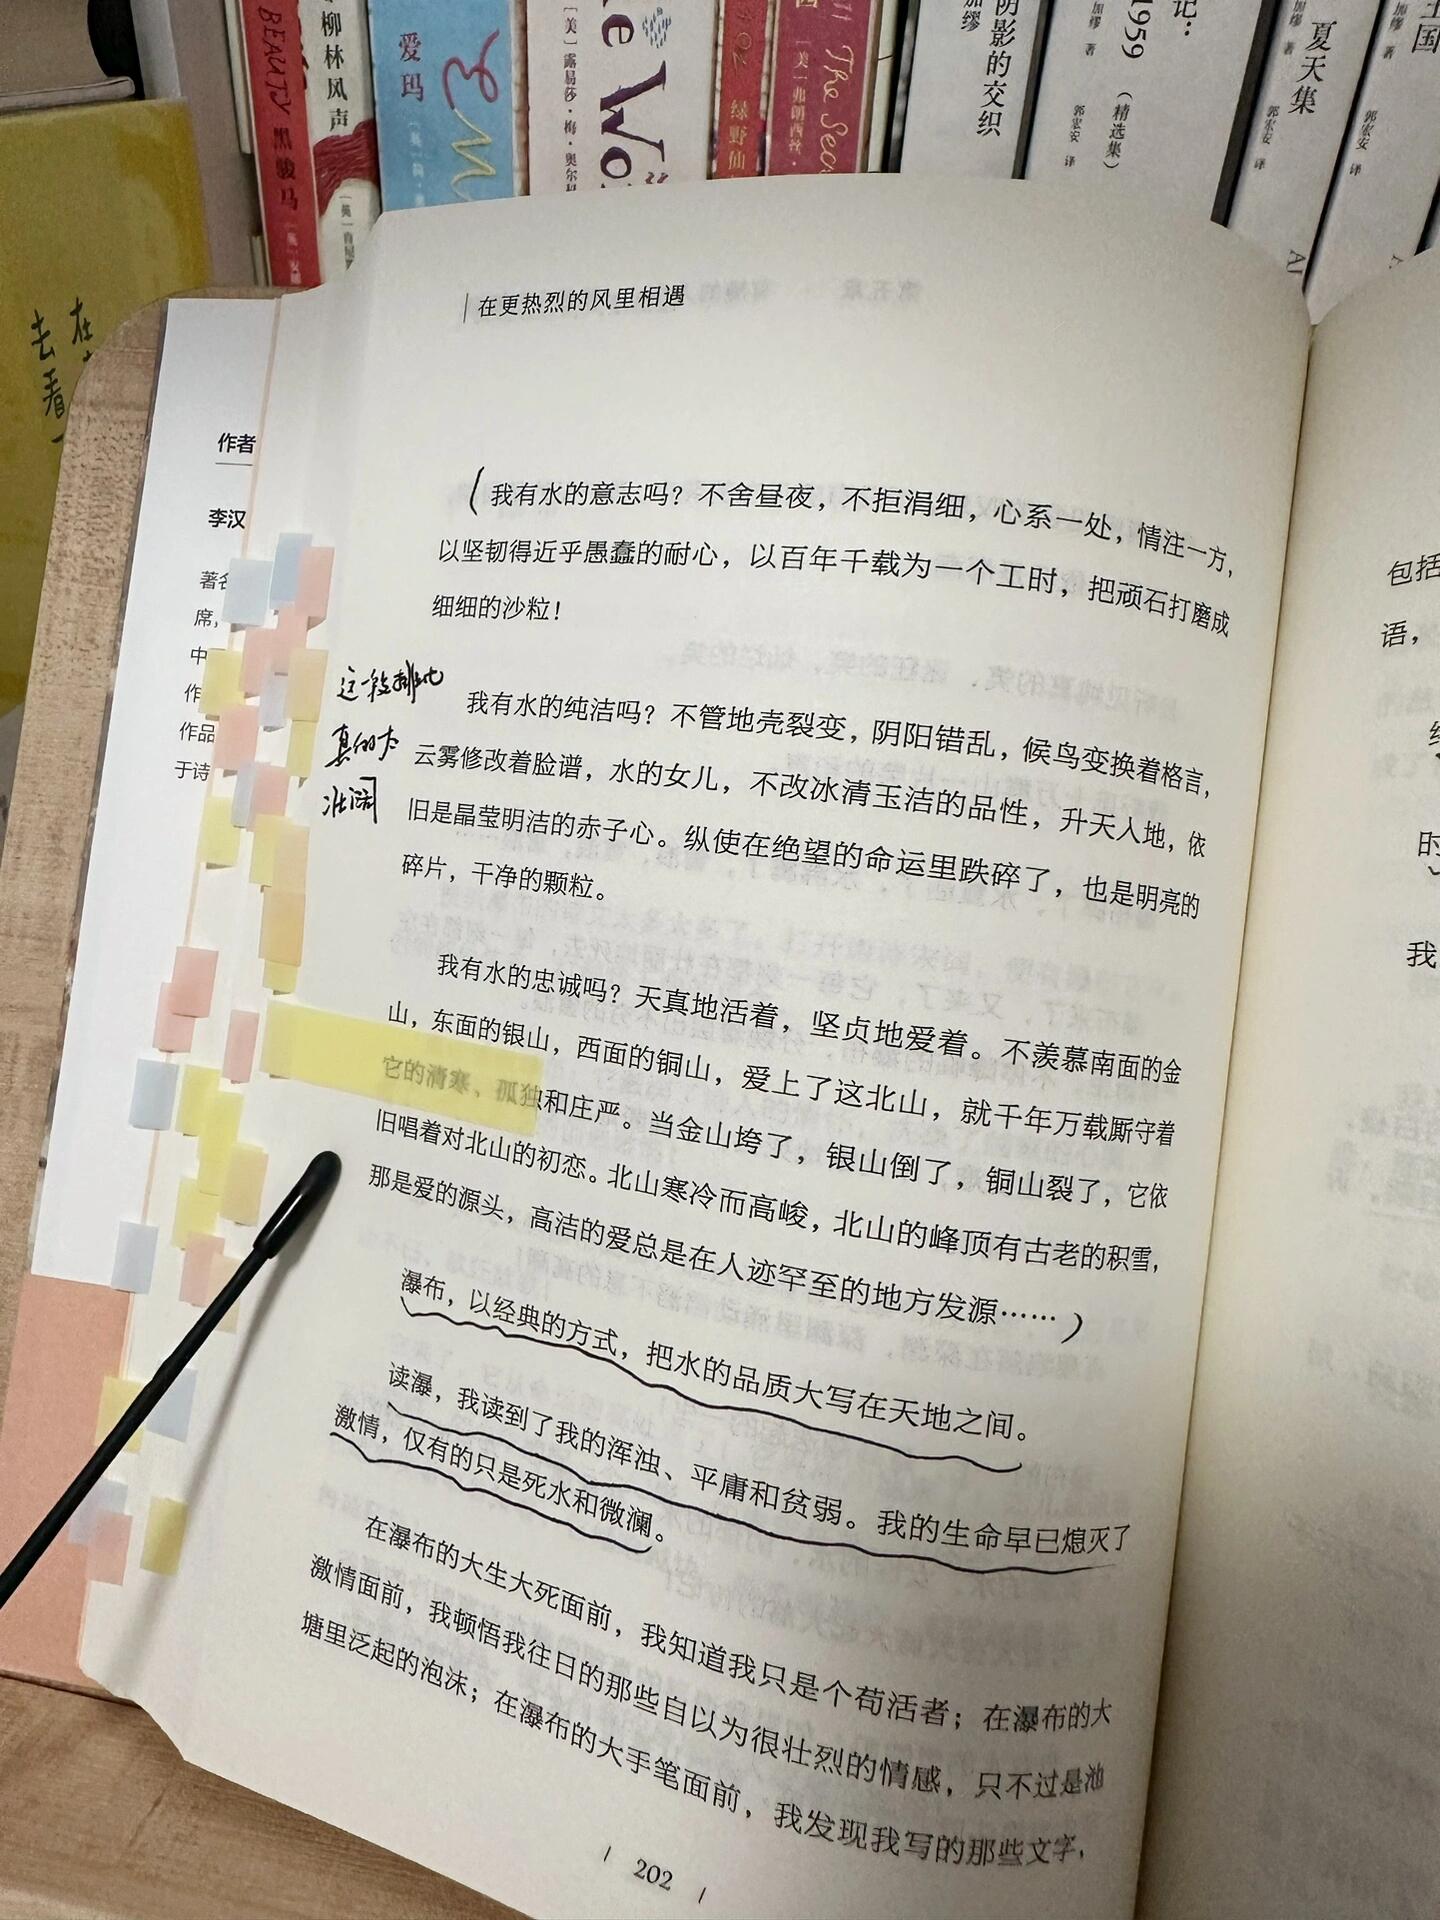 BEAUTY 黑骏马
柳林风声
爱玛
[美] 露易莎·梅·奥尔科
绿野仙
The Sec
[美] 弗朗西丝·
阴影的交织
加缪
记：
1959
（精选集）
加缪 著
郭宏安 译
夏天集
加缪 著
郭宏安 译
王国
加缪 著
郭宏安 译
在
去看
作者
李汉
著名
席，
中
作
作品
于诗
在更热烈的风里相遇
（我有水的意志吗？不舍昼夜，不拒涓细，心系一处，情注一方，
以坚韧得近乎愚蠢的耐心，以百年千载为一个工时，把顽石打磨成
细细的沙粒！
这一段排比
真的太
壮阔
我有水的纯洁吗？不管地壳裂变，阴阳错乱，候鸟变换着格言，
云雾修改着脸谱，水的女儿，不改冰清玉洁的品性，升天入地，依
旧是晶莹明洁的赤子心。纵使在绝望的命运里跌碎了，也是明亮的
碎片，干净的颗粒。
我有水的忠诚吗？天真地活着，坚贞地爱着。不羡慕南面的金
山，东面的银山，西面的铜山，爱上了这北山，就千年万载厮守着
它的清寒、孤独和庄严。当金山垮了，银山倒了，铜山裂了，它依
旧唱着对北山的初恋。北山寒冷而高峻，北山的峰顶有古老的积雪，
那是爱的源头，高洁的爱总是在人迹罕至的地方发源……）
瀑布，以经典的方式，把水的品质大写在天地之间。
读瀑，我读到了我的浑浊、平庸和贫弱。我的生命早已熄灭了
激情，仅有的只是死水和微澜。
在瀑布的大生大死面前，我知道我只是个苟活者；在瀑布的大
激情面前，我顿悟我往日的那些自以为很壮烈的情感，只不过是池
塘里泛起的泡沫；在瀑布的大手笔面前，我发现我写的那些文字，
202
包括
语，
时
我